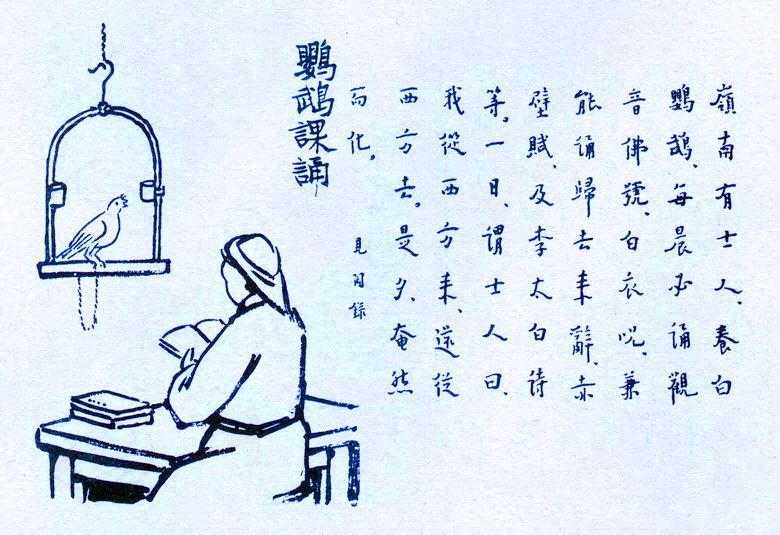 鸚鵡課誦
嶺南有士人、養白
鸚鵡、每晨必誦觀
音佛號、白衣呪、兼
能誦歸去来辭、赤
壁賦、及李太白詩
等。一日、謂士人曰、
我從西方来、還從
西方去。是夕、奄然
而化。
見聞錄